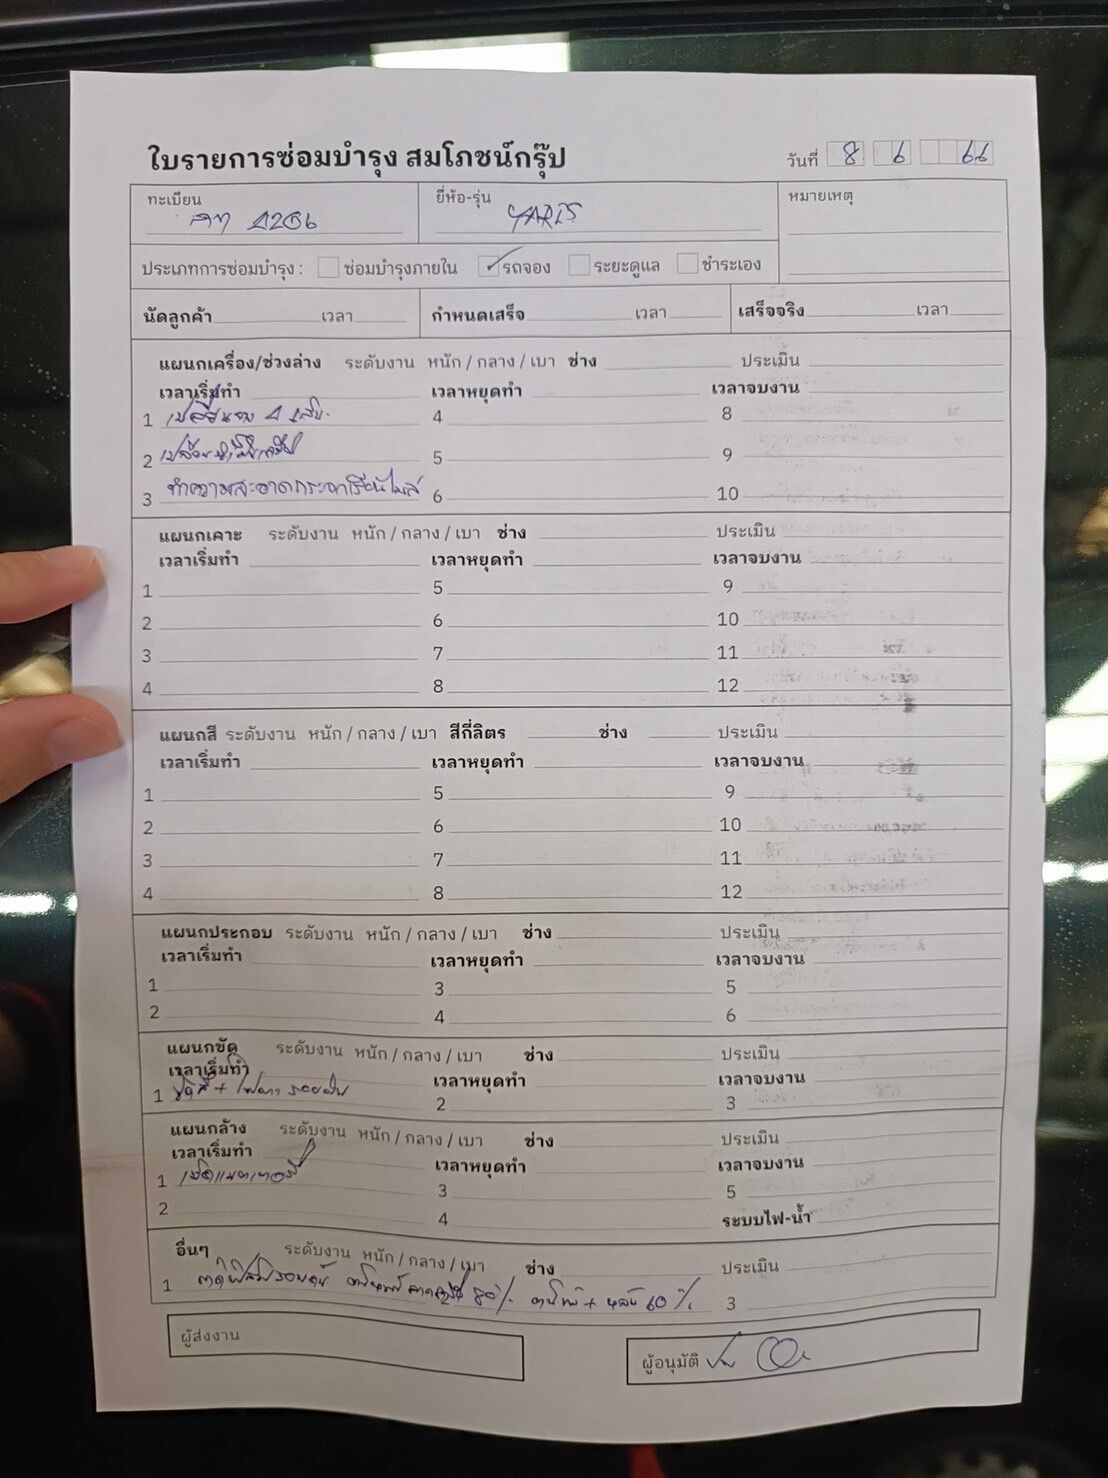 ใบรายการซ่อมบำรุง สมโภชน์กรุ๊ป
วันที่ 8 6 66
ทะเบียน ยี่ห้อ-รุ่น YARIS หมายเหตุ
ประเภทการซ่อมบำรุง : ซ่อมบำรุงภายใน ✓ รถจอง ระยะดูแล ชำระเอง
นัดลูกค้า เวลา กำหนดเสร็จ เวลา เสร็จจริง เวลา
แผนกเครื่อง/ช่วงล่าง ระดับงาน หนัก / กลาง / เบา ช่าง ประเมิน
เวลาเริ่มทำ เวลาหยุดทำ เวลาจบงาน
1 เปลี่ยนยาง 4 เส้น 4 8
2 5 9
3 ทำความสะอาด 6 10
แผนกเคาะ ระดับงาน หนัก / กลาง / เบา ช่าง ประเมิน
เวลาเริ่มทำ เวลาหยุดทำ เวลาจบงาน
1 5 9
2 6 10
3 7 11
4 8 12
แผนกสี ระดับงาน หนัก / กลาง / เบา สีกี่ลิตร ช่าง ประเมิน
เวลาเริ่มทำ เวลาหยุดทำ เวลาจบงาน
1 5 9
2 6 10
3 7 11
4 8 12
แผนกประกอบ ระดับงาน หนัก / กลาง / เบา ช่าง ประเมิน
เวลาเริ่มทำ เวลาหยุดทำ เวลาจบงาน
1 3 5
2 4 6
แผนกขัด ระดับงาน หนัก / กลาง / เบา ช่าง ประเมิน
เวลาเริ่มทำ เวลาหยุดทำ เวลาจบงาน
1 ขัดสี + 2 3
แผนกล้าง ระดับงาน หนัก / กลาง / เบา ช่าง ประเมิน
เวลาเริ่มทำ เวลาหยุดทำ เวลาจบงาน
1 3 5
2 4 ระบบไฟ-น้ำ
อื่นๆ ระดับงาน หนัก / กลาง / เบา ช่าง ประเมิน
1 ติดฟิล์มรอบคัน 80% + หลัง 60% 3
ผู้ส่งงาน ผู้อนุมัติ